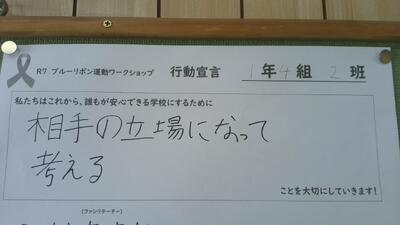 R7 ブルーリボン運動ワークショップ 行動宣言 1年4組 2班
私たちはこれから、誰もが安心できる学校にするために
相手の立場になって
考える
ことを大切にしていきます!
(ファシリテーター)